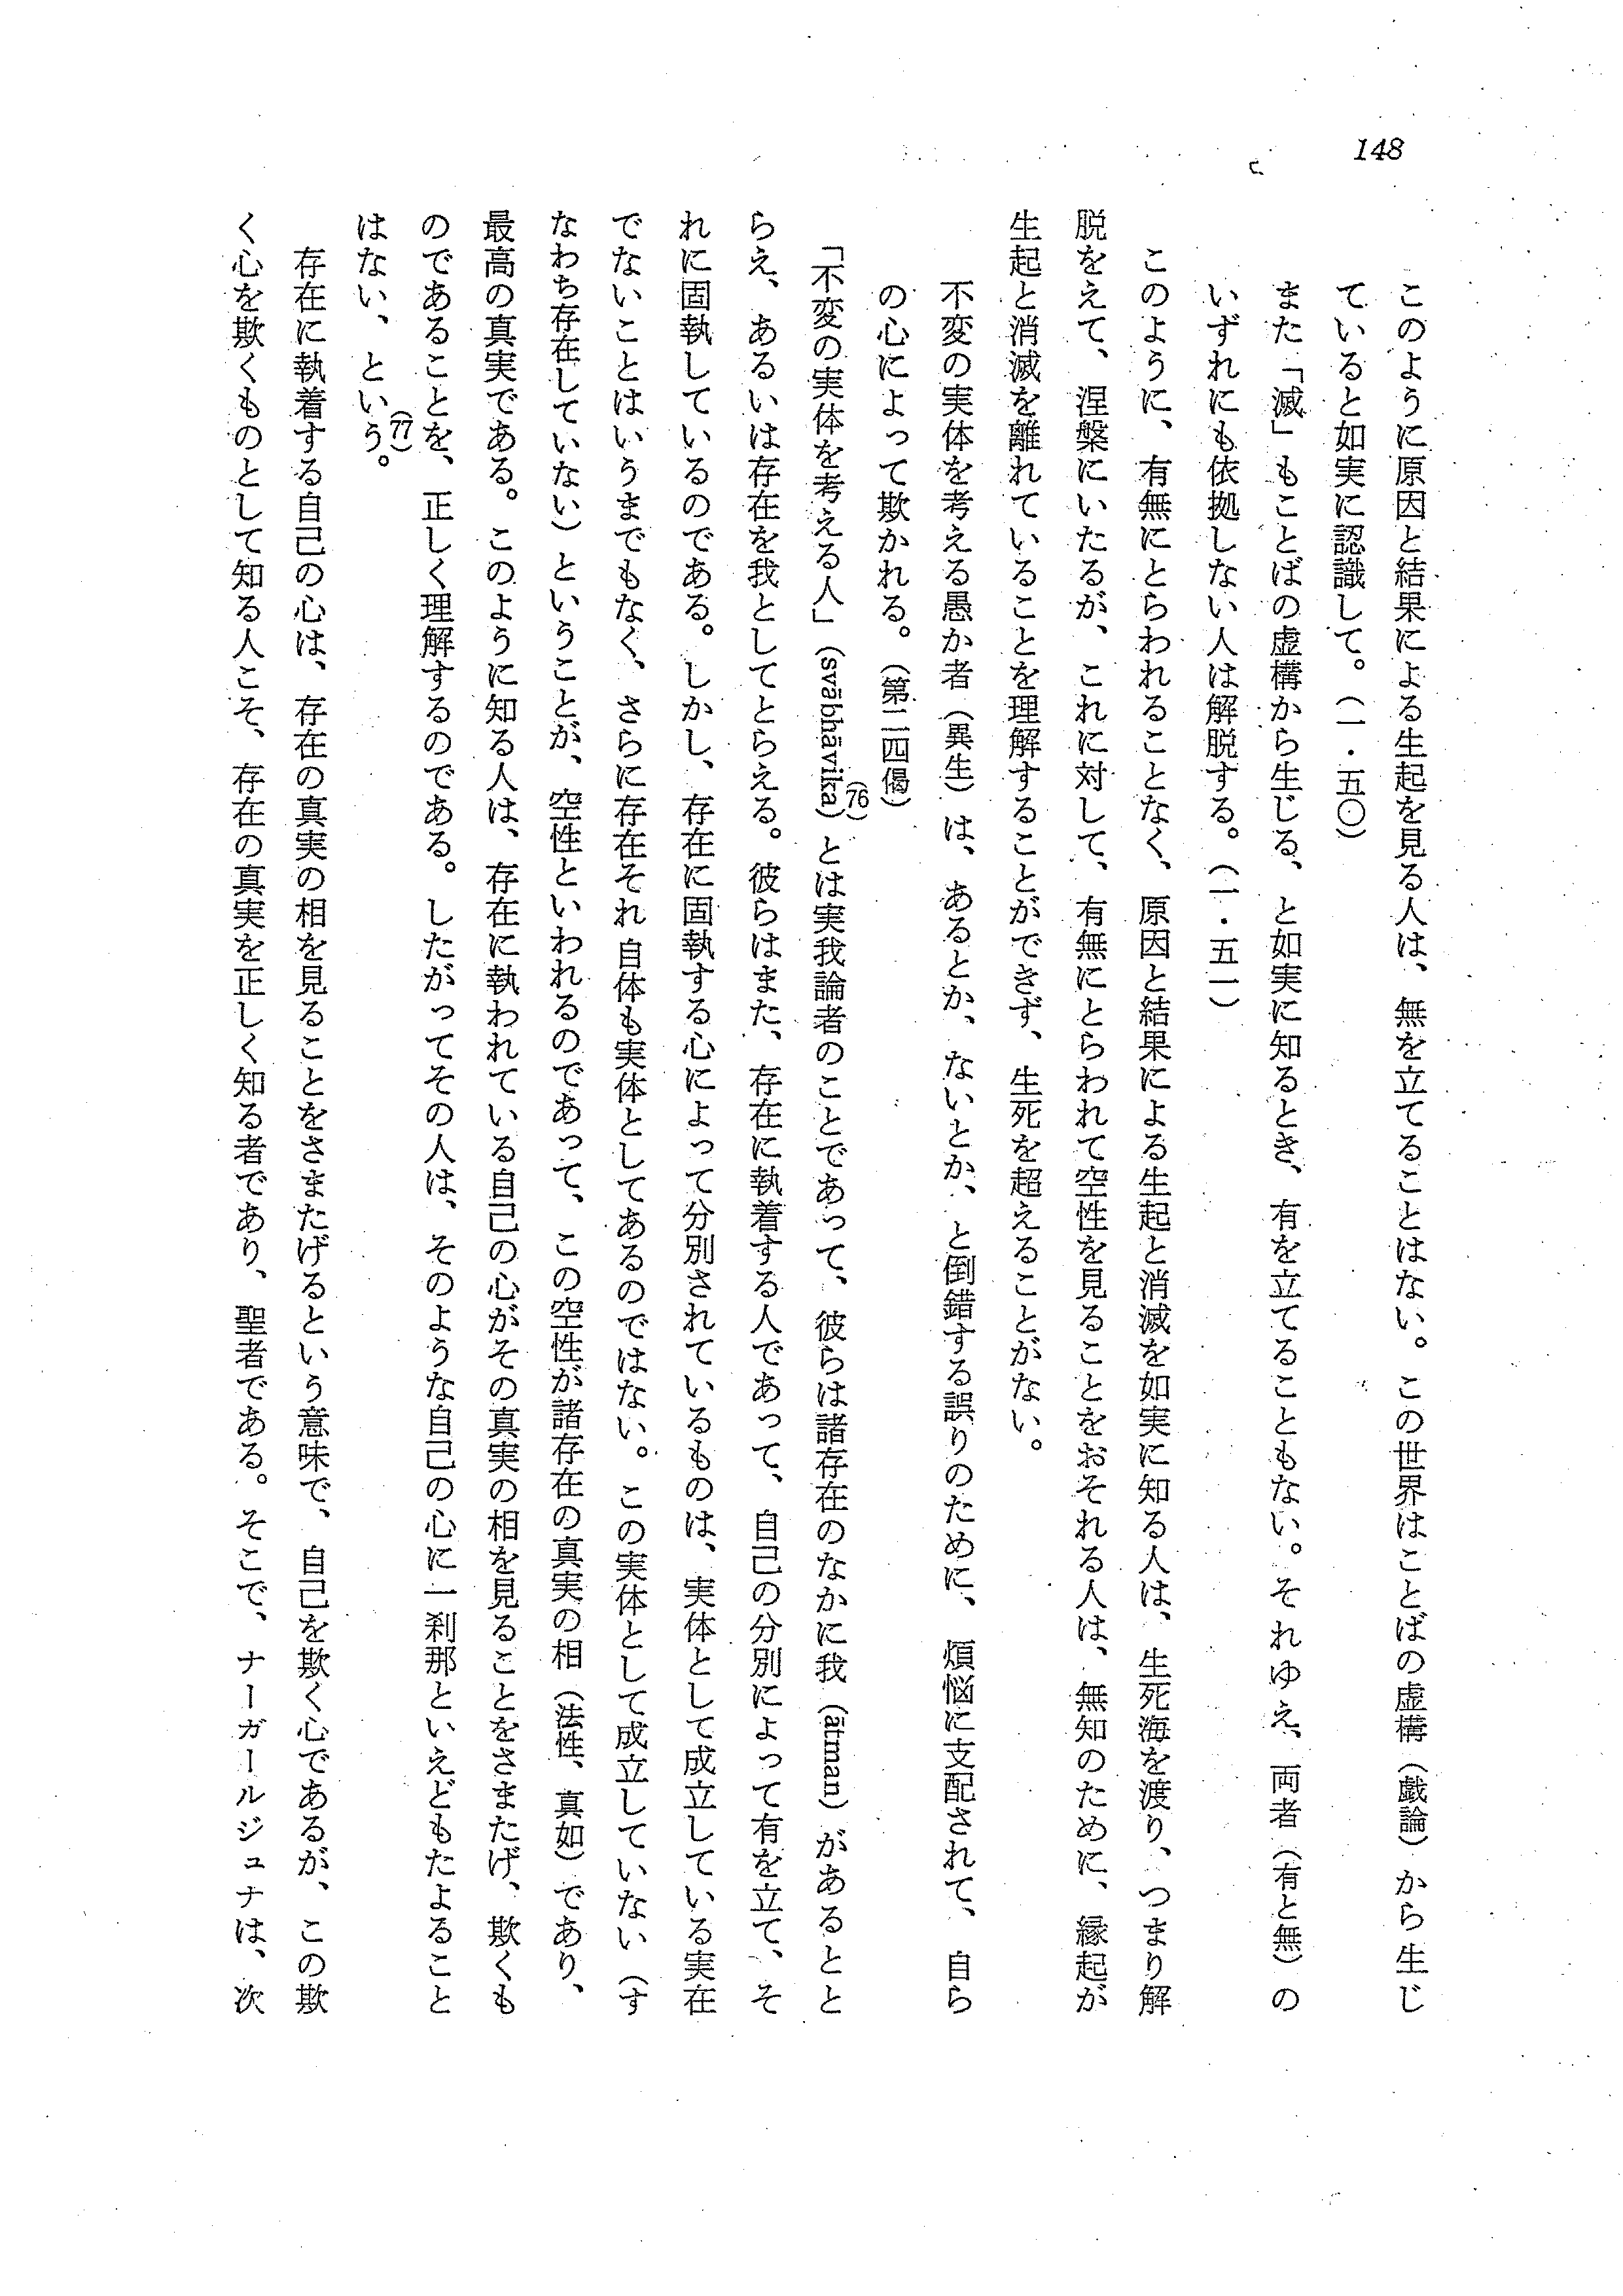 148
このように原因と結果による生起を見る人は、無を立てることはない。この世界はことばの虚構（戯論）から生じ
ていると如実に認識して。（一・五〇）
また「滅」もことばの虚構から生じる、と如実に知るとき、有を立てることもない。それゆえ、両者（有と無）の
いずれにも依拠しない人は解脱する。（一・五一）
このように、有無にとらわれることなく、原因と結果による生起と消滅を如実に知る人は、生死海を渡り、つまり解
脱をえて、涅槃にいたるが、これに対して、有無にとらわれて空性を見ることをおそれる人は、無知のために、縁起が
生起と消滅を離れていることを理解することができず、生死を超えることがない。
不変の実体を考える愚か者（異生）は、あるとか、ないとか、と倒錯する誤りのために、煩悩に支配されて、自ら
の心によって欺かれる。（第二四偈）
「不変の実体を考える人」（svābhāvika）(76)とは実我論者のことであって、彼らは諸存在のなかに我（ātman）があるとと
らえ、あるいは存在を我としてとらえる。彼らはまた、存在に執着する人であって、自己の分別によって有を立て、そ
れに固執しているのである。しかし、存在に固執する心によって分別されているものは、実体として成立している実在
でないことはいうまでもなく、さらに存在それ自体も実体としてあるのではない。この実体として成立していない（す
なわち存在していない）ということが、空性といわれるのであって、この空性が諸存在の真実の相（法性、真如）であり、
最高の真実である。このように知る人は、存在に執われている自己の心がその真実の相を見ることをさまたげ、欺くも
のであることを、正しく理解するのである。したがってその人は、そのような自己の心に一刹那といえどもたよること
はない、という。(77)
存在に執着する自己の心は、存在の真実の相を見ることをさまたげるという意味で、自己を欺く心であるが、この欺
く心を欺くものとして知る人こそ、存在の真実を正しく知る者であり、聖者である。そこで、ナーガールジュナは、次